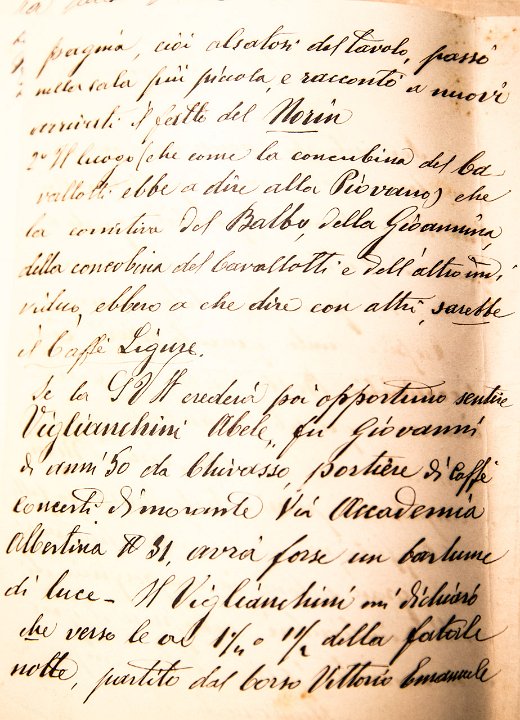 pagnia, cioè alsatosi del tavolo, passò
nella sala più piccola, e raccontò a nuovi
il fatto del Norin
2º Il luogo (che come la concubina del Ca-
vallotti ebbe a dire alla Piovano) che
la comitiva del Balbo, della Gioannina,
della concubina del Cavallotti e dell'altro indi-
viduo, ebbero a che dire con altri, sarebbe
il Caffè Ligure.
Se la S V Ill crederà poi opportuno sentire
Viglianchini Abele, fu Giovanni
di anni 50 da Chivasso, portiere di Caffè
concerti dimorante Via Accademia
Albertina N 31, avrà forse un barlume
di luce - Il Viglianchini mi dichiarò
che verso le ore 1 1/4 o 1 1/2 della fatale
notte, partito dal Corso Vittorio Emanuele